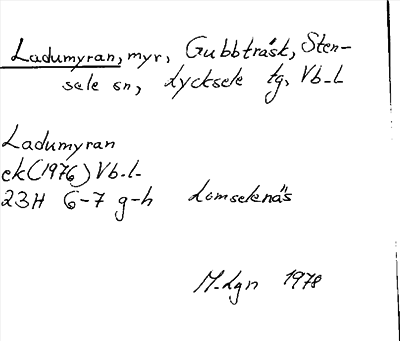 Ladumyran, myr, Gubbträsk, Sten-
sele sn, Lycksele tg, Vb.L
Ladumyran
ek (1976) Vb.L.
23H 6-7 g-h Lomselenäs
M.Lgn 1978